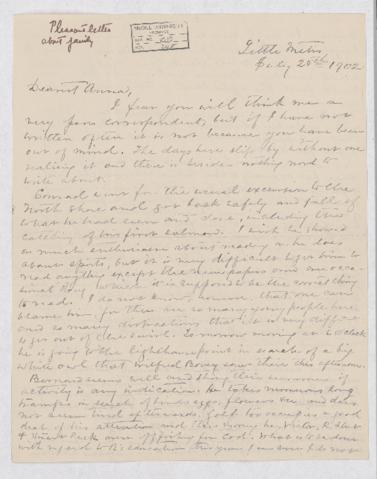 Pleasant letter
about family
Little Metis
July 20th 1902
Dearest Anna,
I fear you will think me a
very poor correspondent, but if I have not
written often it is not because you have been
out of mind. The days here slip by without one
realizing it and there is besides nothing much to
write about.
Conrad went for the usual excursion to the
North Shore and got back safely and full of
what he had seen and done, including the
catching of his first salmon. I wish he showed
as much enthusiasm about reading as he does
about sports, but it is very difficult to get him to
read anything except the newspapers and an occa-
sional Story which it is supposed to be the correct thing
to read. I do not know, however, that one can
blame him, for there are so many young people here
and so many distractions that it is very difficult
to get out of the swirl. Tomorrow morning at
he is going to the lighthouse point in search of a big
white owl that Wilfred Bovey saw there this afternoon.
Bernard seems well and
activity is any indication. He takes mornings long
tramps in search of birds eggs, flowers &c. and does
not seem tired afterwards. Golf too occupies a good
deal of his attention and this morning he, Victor,
were off fishing for Cod. What is to be done
with regard to B's education this year I am sure I do not